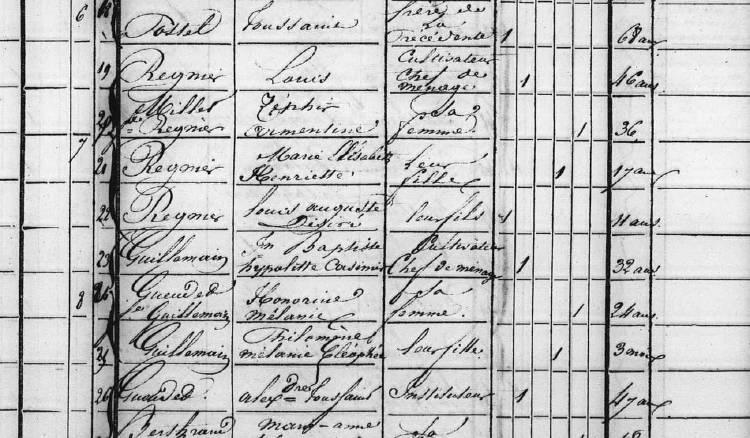 6 18 frère de
la
Tossel Toussaint Précédente 1 68 ans
Cultivateur
19 Regnier Louis Chef de 1 46 ans
ménage
Millet Zéphir Sa
20 Regnier armentine femme 1 36
7 Marie Elisabeth leur
21 Regnier Henriette fille 1 17 ans
22 Regnier Louis auguste leur fils 1 11 ans
Désiré
23 Guillemain Jn Baptiste Cultivateur
hypolitte Casimir Chef de ménage 1 32 ans
8 25 Gueudet Honorine Sa
fe Guillemain mélanie femme. 1 24 ans
Guillemain Philomène leur fille 1 3 mois
mélanie Cléophée
26 Gueudet alexdre Toussaint Instituteur 1 47 ans
Bertrand mary-anne Sa